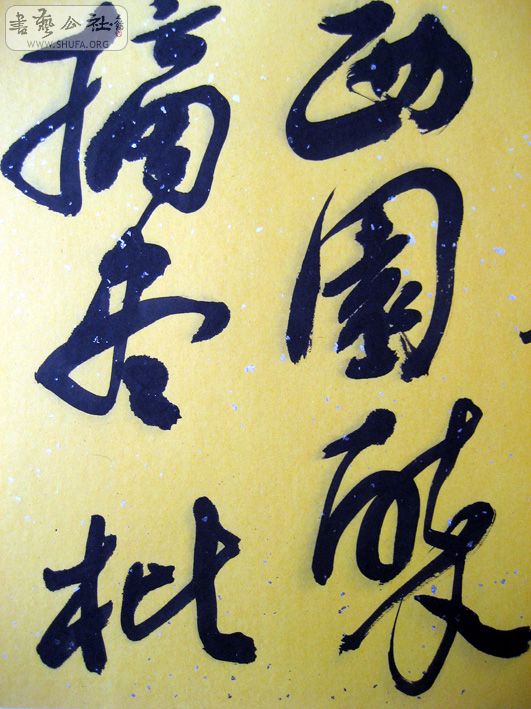 西園醉
摘尽枇
書藝公社
WWW.SHUFA.ORG